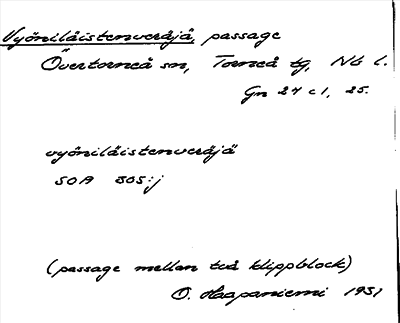 Vyöniläistenveräjä, passage
Övertorneå sn, Torneå tg, Nb l.
Gn 27 c 1, 25.
vyöniläistenveräjä
SOA 305:j
(passage mellan två klippblock)
O. Haapaniemi 1951